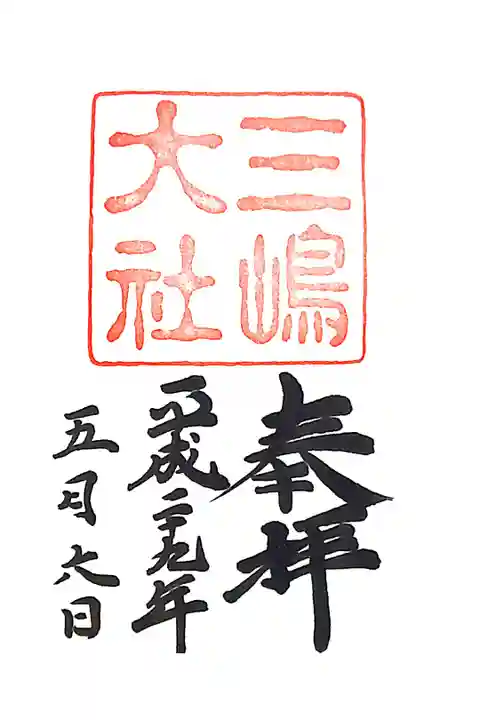 三嶋
大社
奉拝
平成二十九年
五月六日